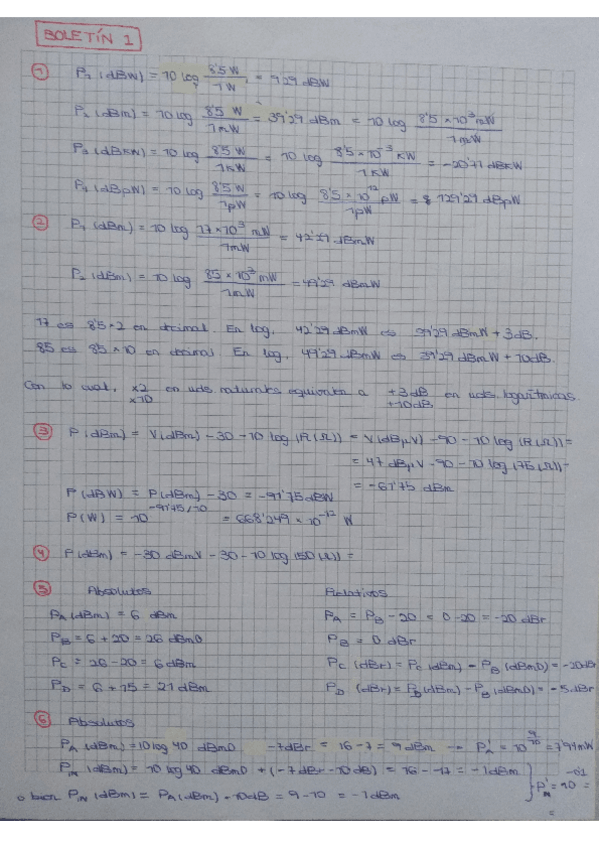 BOLETÍN 1
1 P1 (dBW) = 10 log 8'5 W / 1 W = 9'29 dBW
P2 (dBm) = 10 log 8'5 W / 1 mW = 39'29 dBm = 10 log 8'5 × 10^3 mW / 1 mW
P3 (dBKW) = 10 log 8'5 W / 1 KW = 10 log 8'5 × 10^-3 KW / 1 KW = -20'71 dBKW
P4 (dBpW) = 10 log 8'5 W / 1 pW = 10 log 8'5 × 10^12 pW / 1 pW = 129'29 dBpW
2 P1 (dBm) = 10 log 17 × 10^3 mW / 1 mW = 42'29 dBmW
P2 (dBm) = 10 log 85 × 10^3 mW / 1 mW = 49'29 dBmW
17 es 8'5 × 2 en decimal. En log, 42'29 dBmW es 39'29 dBmW + 3 dB.
85 es 8'5 × 10 en decimal. En log, 49'29 dBmW es 39'29 dBmW + 10 dB.
Con lo cual, ×2 ×10 en uds naturales equivale a +3 dB +10 dB en uds logarítmicas.
3 P (dBm) = V (dBm) - 30 - 10 log (R (Ω)) = V (dBμV) - 90 - 10 log (R (Ω)) =
= 47 dBμV - 90 - 10 log (75 (Ω)) =
= -61'75 dBm
P (dBW) = P (dBm) - 30 = -91'75 dBW
P (W) = 10^-91'75/10 = 668'249 × 10^-12 W
4 P (dBm) = -30 dBmV - 30 - 10 log (50 (Ω)) =
5 Absolutos Relativos
PA (dBm) = 6 dBm PA = PB - 20 = 0 - 20 = -20 dBr
PB = 6 + 20 = 26 dBm0 PB = 0 dBr
PC = 26 - 20 = 6 dBm PC (dBr) = PC (dBm) - PB (dBm0) = -20 dBr
PD = 6 + 15 = 21 dBm PD (dBr) = PD (dBm) - PB (dBm0) = -5 dBr
6 Absolutos
PA (dBm) = 10 log 40 dBm0 -7 dBr = 16 - 7 = 9 dBm → PA' = 10^9/10 = 7'94 mW
PIN (dBm) = 10 log 40 dBm0 + (-7 dBr - 10 dB) = 16 - 17 = -1 dBm
o bien PIN (dBm) = PA (dBm) - 10 dB = 9 - 10 = -1 dBm } PIN' = 10^-0'1 =
=